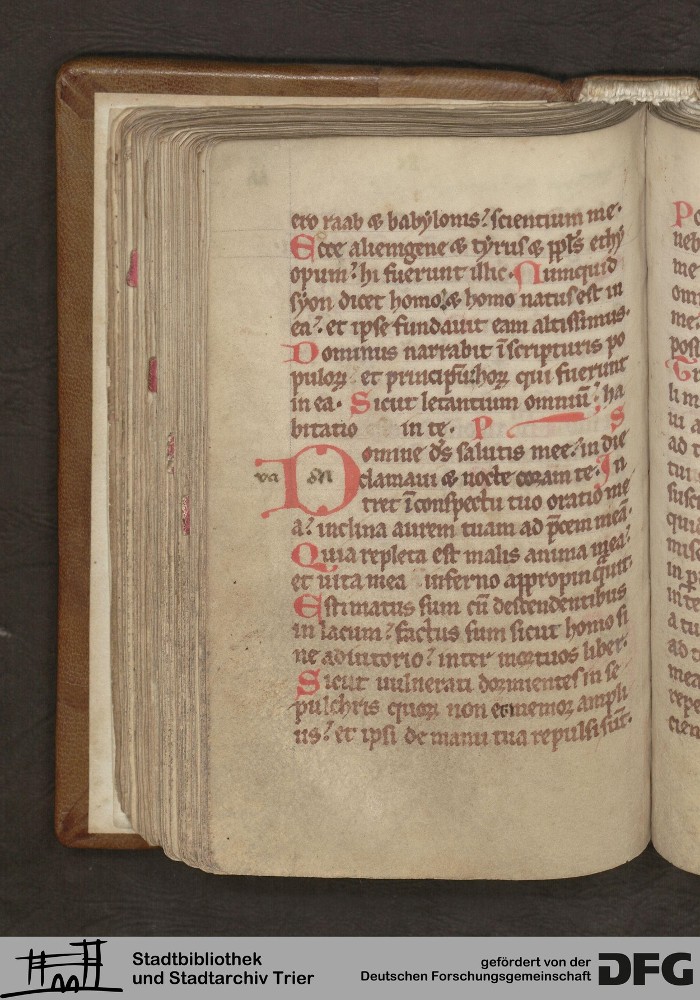 ero raab & babylonis? scientium me·
Ecce alienigene & tyrus & ppl's ethy
opum? hi fuerunt illic· Numquid
syon dicet homo? & homo natus est in
ea? et ipse fundauit eam altissimus·
Dominus narrabit ī scripturis po
puloꝝ et principū? hoꝝ qui fuerunt
in ea· Sicut letantium omniū? ha
bitatio in te· P S
Domine d̄s salutis mee? in die
clamaui & nocte coram te· In
tret ī conspectu tuo oratio me
a? inclina aurem tuam ad p̄cem meā·
Quia repleta est malis anima mea?
et uita mea inferno appropinquit·
Estimatus sum cū descendentibus
in lacum? factus sum sicut homo si
ne adiutorio? inter mortuos liber·
Sicut uulnerati dormientes in se
pulchris quoꝝ non es memor ampli
us? et ipsi de manu tua repulsi sūt·
Stadtbibliothek
und Stadtarchiv Trier
gefördert von der
Deutschen Forschungsgemeinschaft
DFG